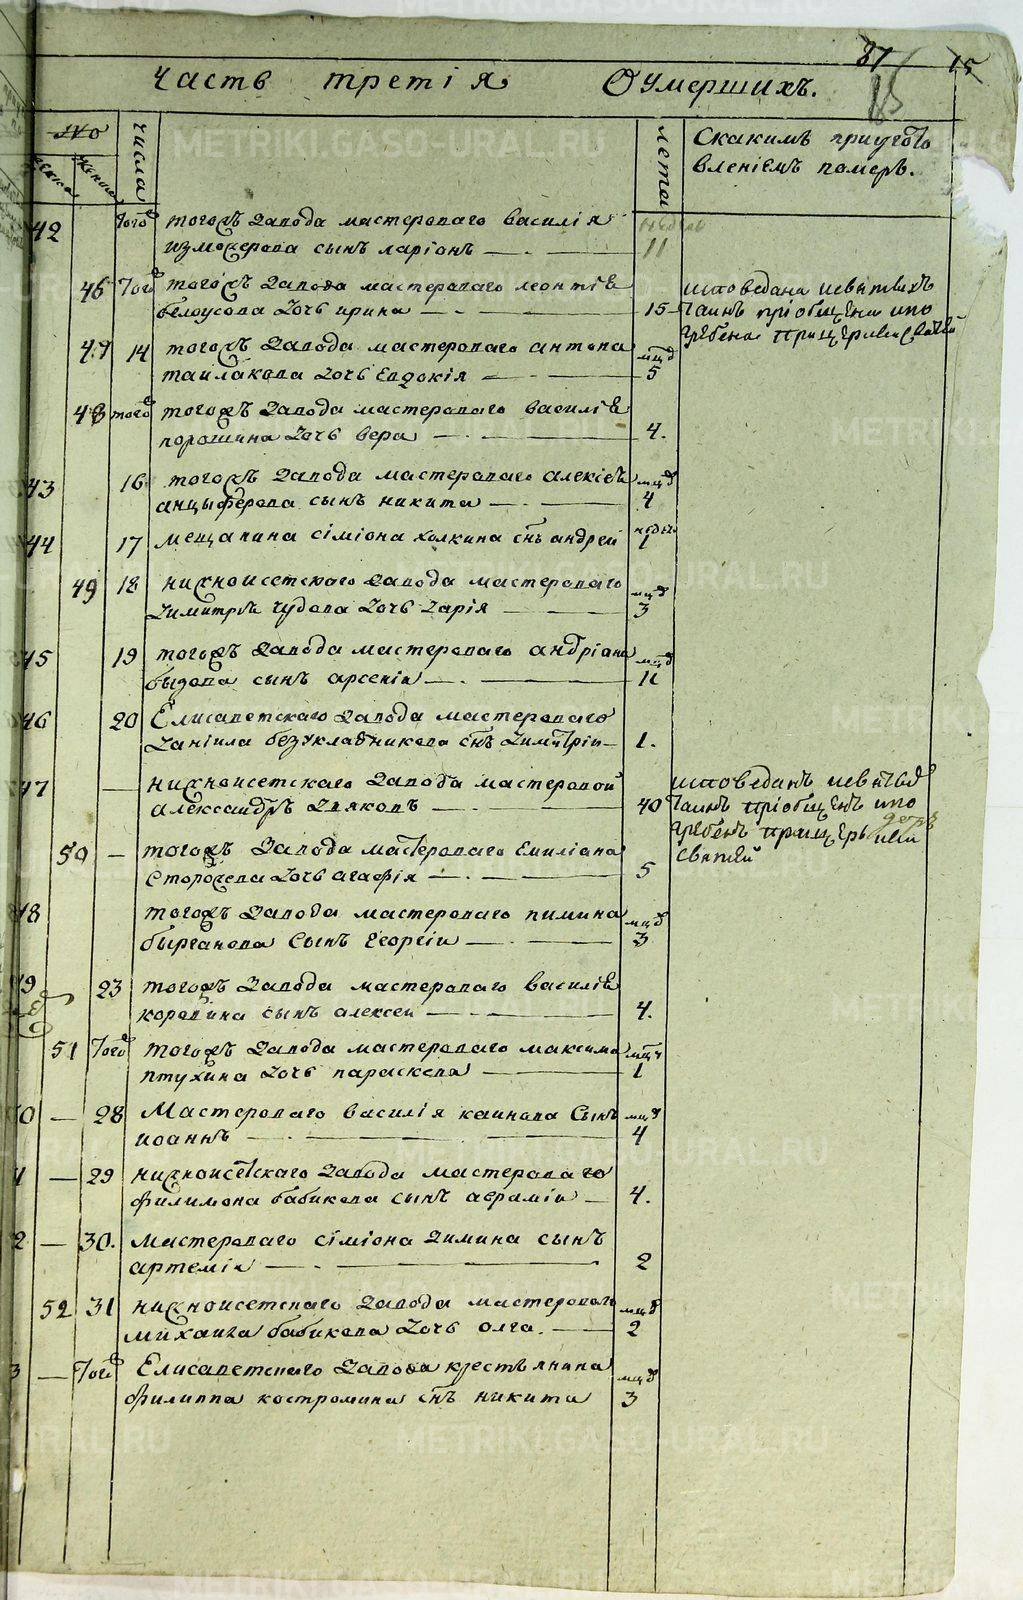 часть третія О умершихъ.
87 15
No
числа
лета
Скакимъ приугото
вленіемъ померъ.
42 того тогожъ завода мастероваго василія недель
сынъ ларіонъ 11
46 того тогожъ завода мастероваго леонтіе исповедана исвятыхъ
белоусова дочь ирина 15 таинъ пріобщена ипо
гребена прицеркви святей
47 14 тогожъ завода мастероваго антона мцд
таилакова дочь евдокія 5
48 того тогожъ завода мастероваго василіе
порошина дочь вера 4.
43 16 тогожъ завода мастероваго алексіеи мцд
анцыферова сынъ никита 4
44 17 мещанина сіміона холкина снъ андреи недель 1
49 18 нижноисетскаго завода мастероваго мцд
димитріе чудова дочь дарія 3
45 19 тогожъ завода мастероваго андріана мцд
сынъ арсеніи 11
46 20 Елисаветскаго завода мастероваго
даніила безукладникова снъ димитріи 1.
47 — нижноисетскаго завода мастеровои исповеданъ исвятыхъ
александръ дьяковъ 40 таинъ пріобщенъ ипо
гребенъ прицеркви
50 — тогожъ завода мастероваго емиліана святей
сторожева дочь агафія 5
48 тогожъ завода мастероваго пимина мцд
сынъ георгіи 3
49 23 тогожъ завода мастероваго василіе
коровина сынъ алексеи 4.
51 того тогожъ завода мастероваго максима мцъ
птухина дочь параскева 1
50 — 28 Мастероваго василія каинова Сынъ мцд
иоаннъ 4
— 29 нижноисетскаго завода мастероваго
филимона бабикова сынъ авраміи 4.
2 — 30. мастероваго сіміона зимина сынъ
артеміи 2
52 31 нижноисетскаго завода мастероваго мцд
михаила бабикова дочь олга. 2
3 — того Елисаветскаго завода крестьянина мцд
филиппа костромина снъ никита 3
METRIKI.GASO-URAL.RU